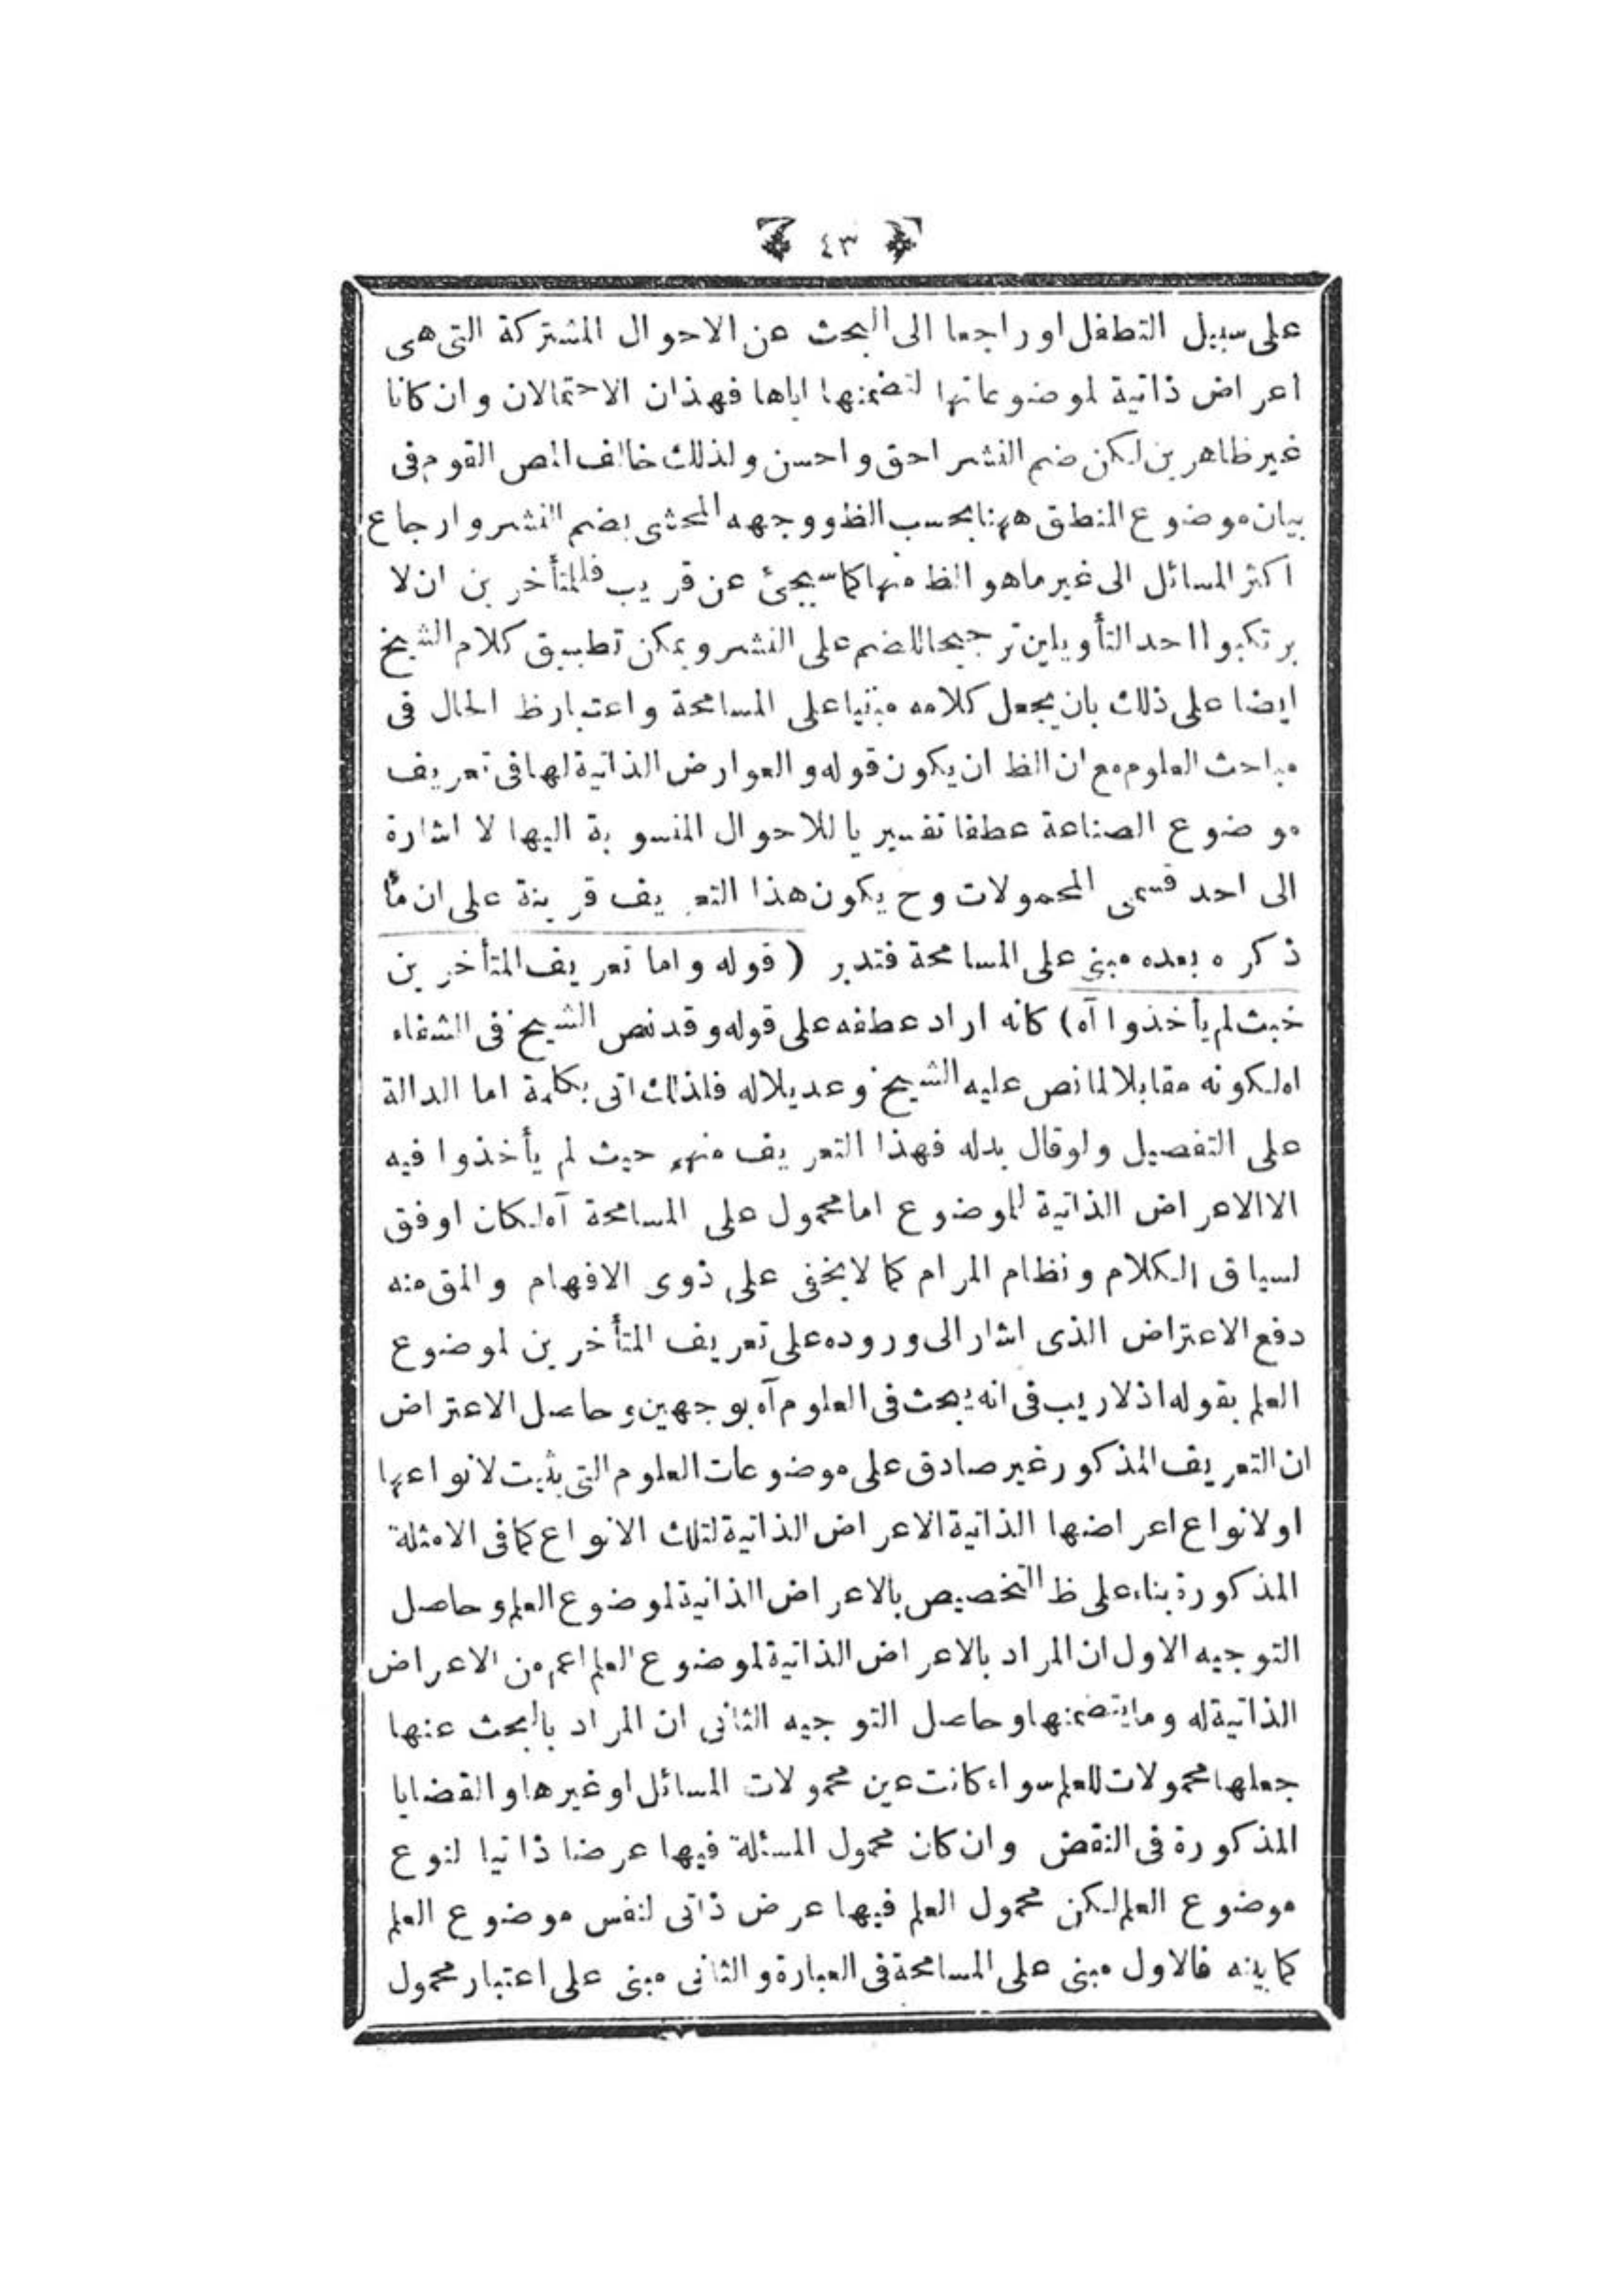 ٤٣
على سبيل التطفل او راجعا الى البحث عن الاحوال المشتركة التى هى
اعراض ذاتية لموضوعاتها لتضمنها اياها فهذان الاحتمالان وان كانا
غير ظاهرين لكن ضم النشر احق واحسن ولذلك خالف المص القوم فى
بيان موضوع المنطق ههنا بحسب الظ ووجهه المحشى بضم النشر وارجاع
اكثر المسائل الى غير ما هو الظ منها كما سيجئ عن قريب فللمتأخرين ان لا
يرتكبوا احد التأويلين ترجيحا للضم على النشر ويمكن تطبيق كلام الشيخ
ايضا على ذلك بان يجعل كلامه مبنيا على المسامحة واعتبار ظ الحال فى
مباحث العلوم مع ان الظ ان يكون قوله والعوارض الذاتية لها فى تعريف
موضوع الصناعة عطفا تفسيريا للاحوال المنسوبة اليها لا اشارة
الى احد قسمى المحمولات وح يكون هذا التعريف قرينة على ان ما
ذكره بعده مبنى على المسامحة فتدبر (قوله واما تعريف المتأخرين
خبث لم يأخذوا آه) كانه اراد عطفه على قوله وقد نص الشيخ فى الشفاء
اه لكونه مقابلا لما نص عليه الشيخ وعديلا له فلذلك اتى بكلمة اما الدالة
على التفصيل ولو قال بدله فهذا التعريف منهم حيث لم يأخذوا فيه
الا الاعراض الذاتية للموضوع اما محمول على المسامحة آه لكان اوفق
لسياق الكلام ونظام المرام كما لا يخفى على ذوى الافهام والمق منه
دفع الاعتراض الذى اشار الى وروده على تعريف المتأخرين لموضوع
العلم بقوله اذ لا ريب فى انه يبحث فى العلوم آه بوجهين وحاصل الاعتراض
ان التعريف المذكور غير صادق على موضوعات العلوم التى يثبت لانواعها
او لانواع اعراضها الذاتية الاعراض الذاتية لتلك الانواع كما فى الامثلة
المذكورة بناء على ظ التخصيص بالاعراض الذاتية لموضوع العلم وحاصل
التوجيه الاول ان المراد بالاعراض الذاتية لموضوع العلم اعم من الاعراض
الذاتية له وما يتضمنها وحاصل التوجيه الثانى ان المراد بالبحث عنها
جعلها محمولات للعلم سواء كانت عين محمولات المسائل او غيرها والقضايا
المذكورة فى النقض وان كان محمول المسئلة فيها عرضا ذاتيا لنوع
موضوع العلم لكن محمول العلم فيها عرض ذاتى لنفس موضوع العلم
كما بينه فالاول مبنى على المسامحة فى العبارة والثانى مبنى على اعتبار محمول